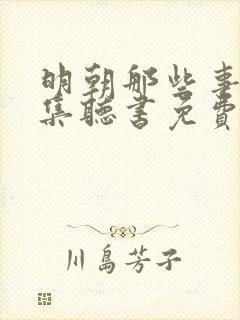 明朝那些事
集聽書免費
川島芳子